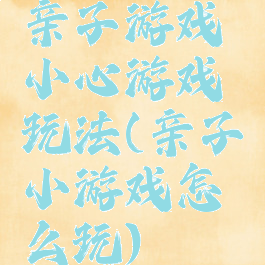 亲子游戏
小心游戏
玩法(亲子
小游戏怎
么玩)